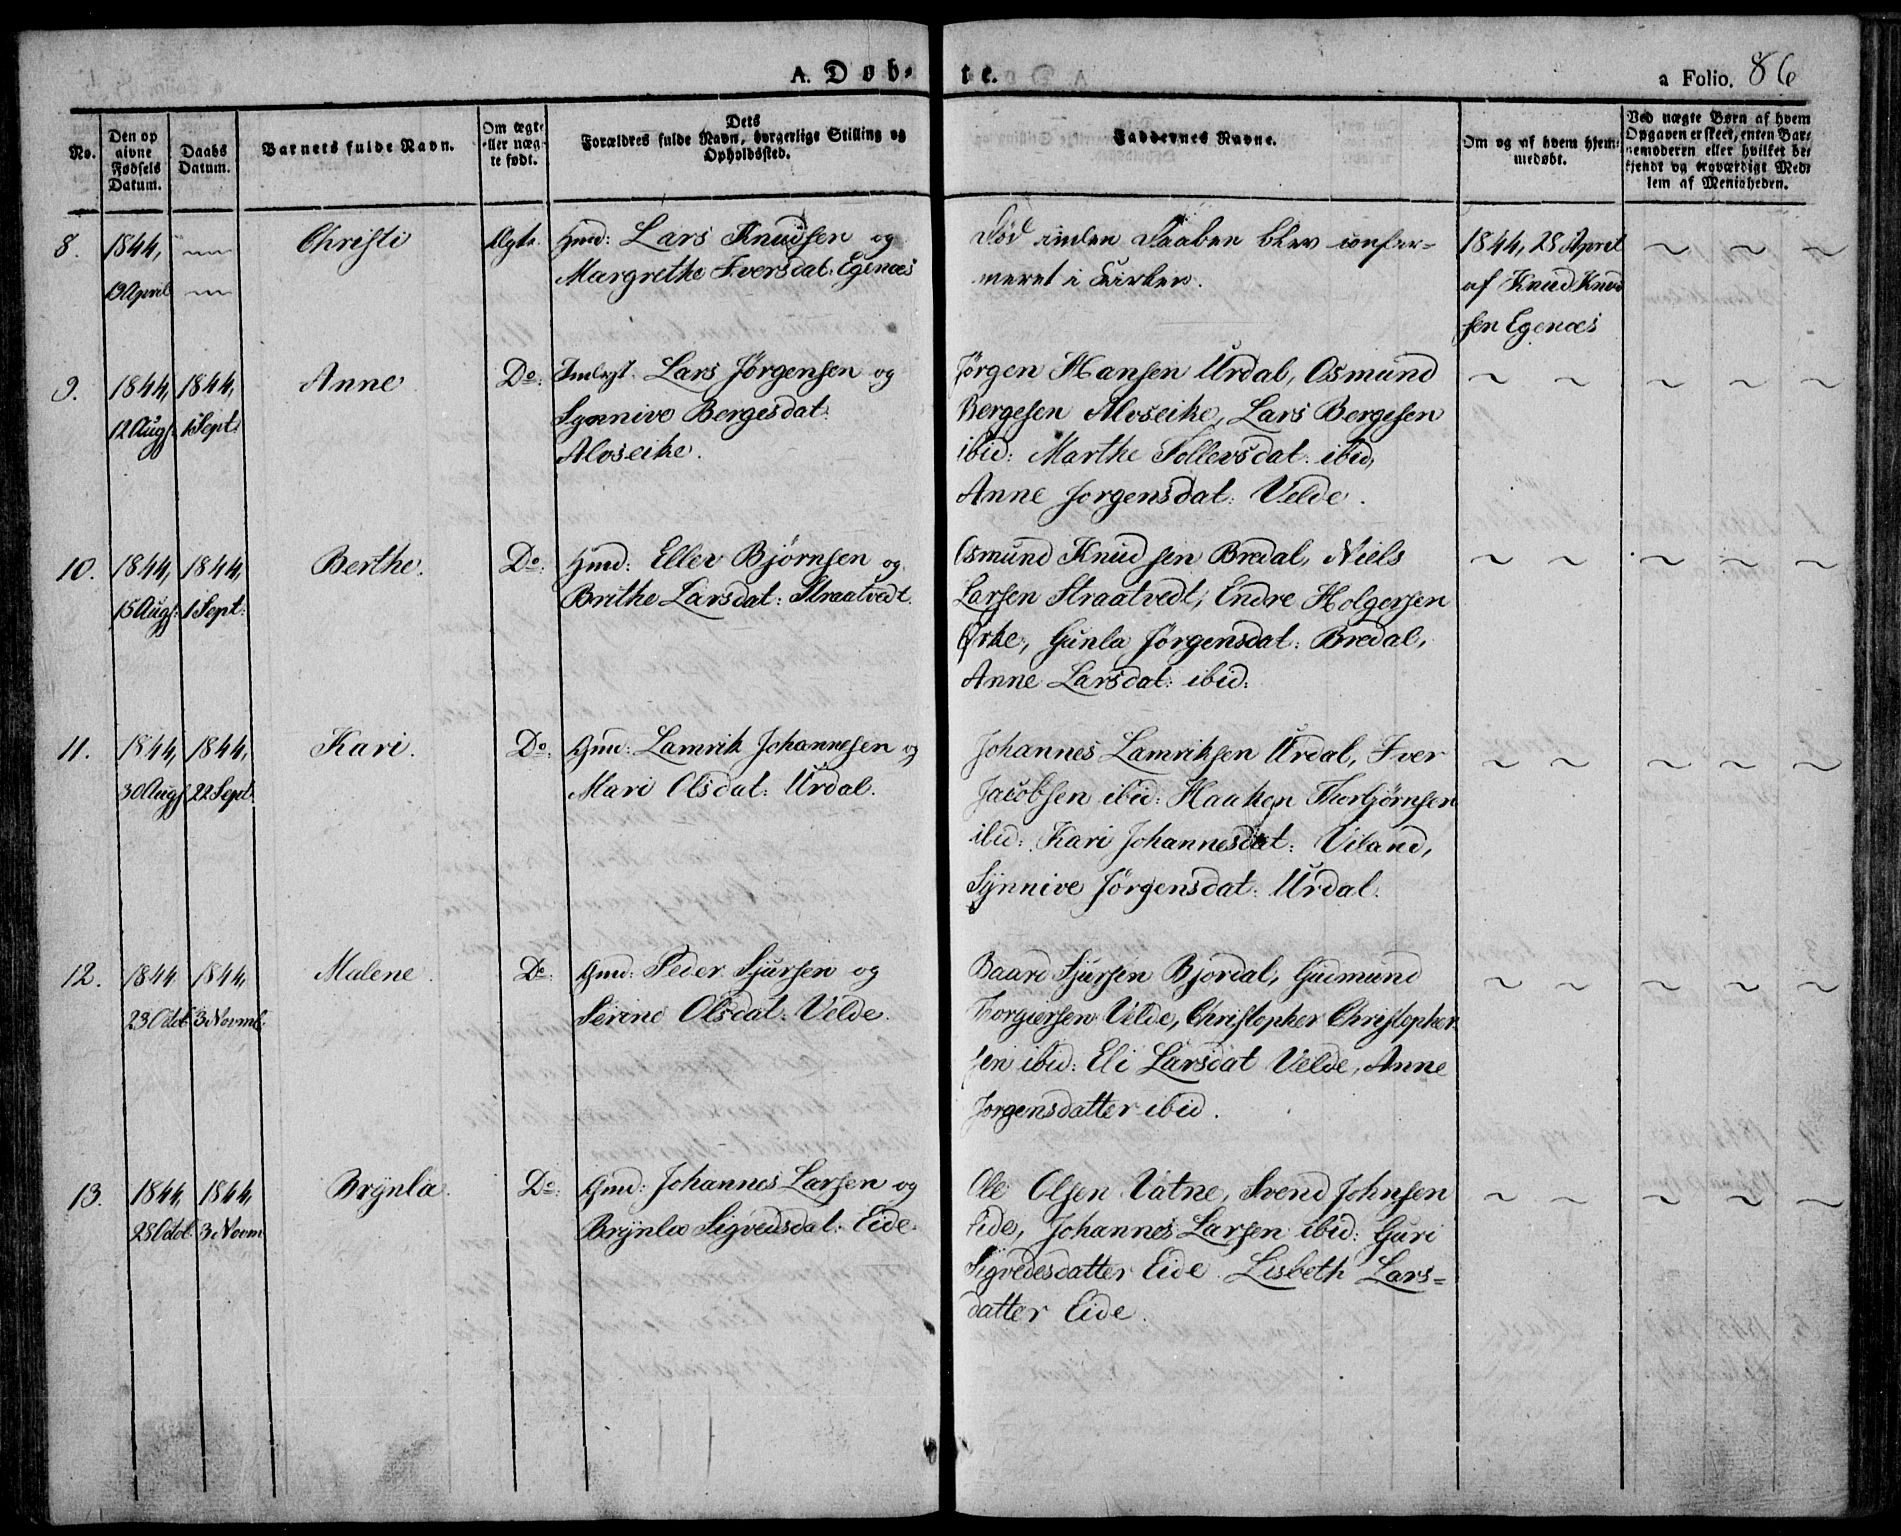 A. Døb- te.
a Folio. 86
No.
Den op givne Fødsels Datum.
Daabs Datum.
Barnets fulde Navn.
Om ægte eller uægte født.
Dets Forældres fulde Navn, borgerlige Stilling og Opholdssted.
Faddernes Navne.
Om og af hvem hjemmedøbt.
Ved uægte Børn af hvem Opgaven er skeet, enten Barnemoderen eller hvilket bekjendt og troværdigt Medlem af Menigheden.
8. 1844, Christi Ægte. Gmd: Lars Knudsen og
13 April Margrethe Iversdat: Egenæs
Død inden Daaben blev confir-
meret i Kirken.
1844, 28 April
af Knud Knud
sen Egenæs
9. 1844, 1844, Anne Do: Indrst. Lars Jørgensen og
12 Augs: 1 Sept: Synnive Børgesdat:
Alvseike.
Jørgen Hansen Urdal, Osmund
Børgesen Alvseike, Lars Børgesen
ibid: Marthe Tollevsdat: ibid,
Anne Jørgensdat: Velde.
10. 1844, 1844, Berthe. Do: Gmd: Ellev Bjørnsen og
15 Augs: 1 Sept: Brithe Larsdat: Straatvedt
Osmund Knudsen Bredal, Niels
Larsen Straatvedt, Endre Holgersen
Ørke, Gunla Jørgensdat: Bredal,
Anne Larsdat: ibid:
11. 1844, 1844, Kari. Do: Gmd: Lamrik Johannesen og
30 Augs 22 Sept: Mari Olsdat: Urdal.
Johannes Lamriksen Urdal, Iver
Jacobsen ibid: Haaken Thorbjørnsen
ibid: Kari Johannesdat: Viland,
Synnive Jørgensdat: Urdal.
12. 1844 1844, Malene. Do: Gmd: Peder Sjursen og
23 Octob. 3 Novmb. Serine Olsdat: Velde.
Baard Sjursen Bjordal, Gudmund
Torgiersen Velde, Christopher Christopher
sen ibid: Eli Larsdat Velde, Anne
Jørgensdatter ibid.
13. 1844, 1844, Brynla. Do: Gmd: Johannes Larsen og
28 Octob. 3 Novm Brynla Sigvedsdat: Eide.
Ole Olsen Vatne, Svend Johnsen
Eide, Johannes Larsen ibid: Guri
Sigvedesdatter Eide. Lisbeth Lars=
datter Eide.